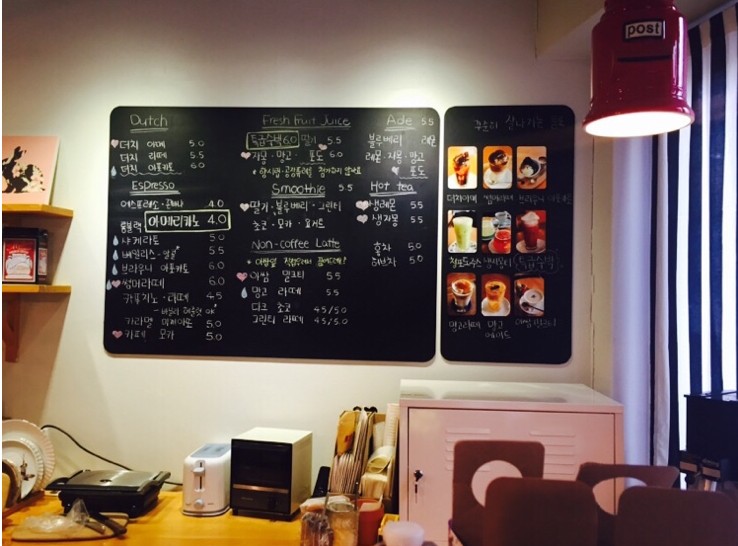 post
Dutch
더치 아메 5.0
더치 라떼 5.5
더치 아포카토 6.0
Espresso
에스프레소 · 4.0
롱블랙 아메리카노 4.0
샤케라토 5.0
베일리스 · 5.5
브라우니 아포카토 6.0
썸머라떼 6.0
카푸치노 · 라떼 4.5
카라멜 마끼아또 5.0
카페 모카 5.0
Fresh Fruit Juice
특급수박 6.0 딸기 5.5
자몽 · 망고 · 포도 6.0
Smoothie 5.5
딸기 · 블루베리 · 그린티
초코 · 모카 · 요거트
Non-coffee Latte
이쌈 밀크티 5.5
망고 라떼 5.5
디프 초코 4.5/5.0
그린티 라떼 4.5/5.0
Ade 5.5
블루베리 레몬
레몬 · 자몽 · 망고
포도
Hot tea
생레몬 5.5
생자몽 5.5
홍차 5.0
허브차 5.0
더치아메 썸머라떼 브라우니
청포도주스 특급수박
망고라떼 망고에이드 이쌈밀크티